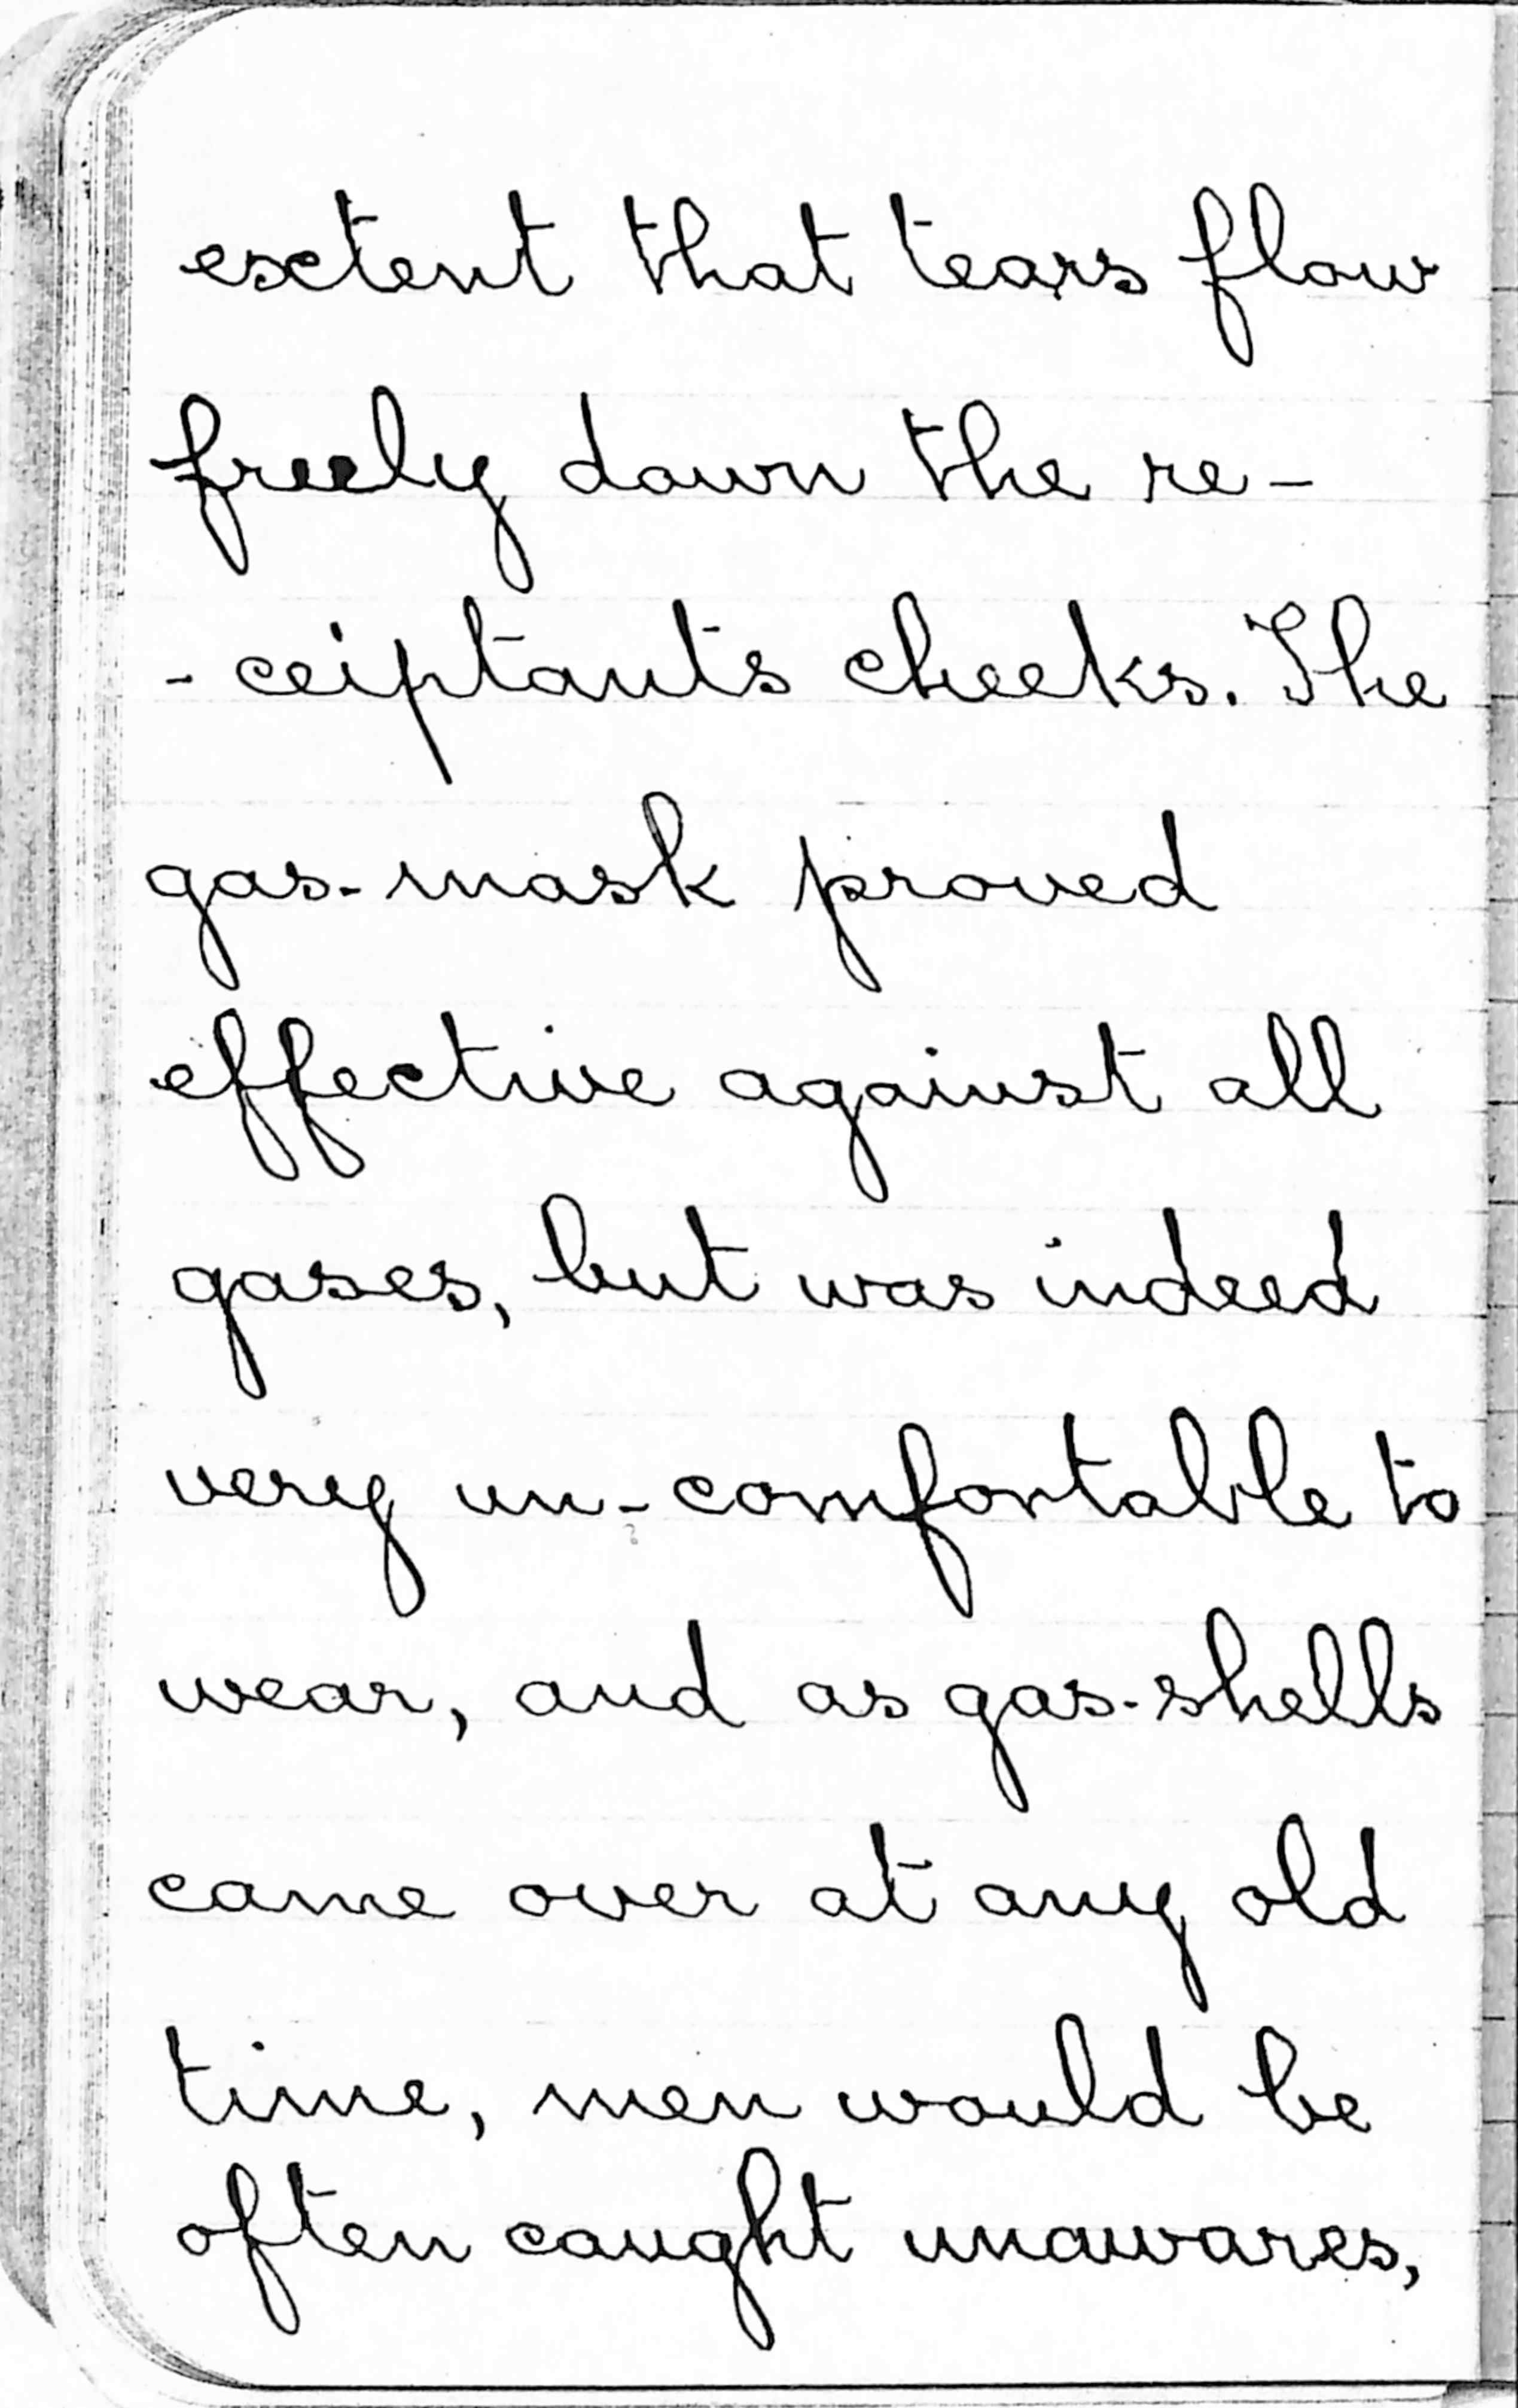 extent that tears flow
freely down the re-
-ceiptants cheeks. The
gas-mask proved
effective against all
gases, but was indeed
very un-comfortable to
wear, and as gas-shells
came over at any old
time, men would be
often caught unawares,